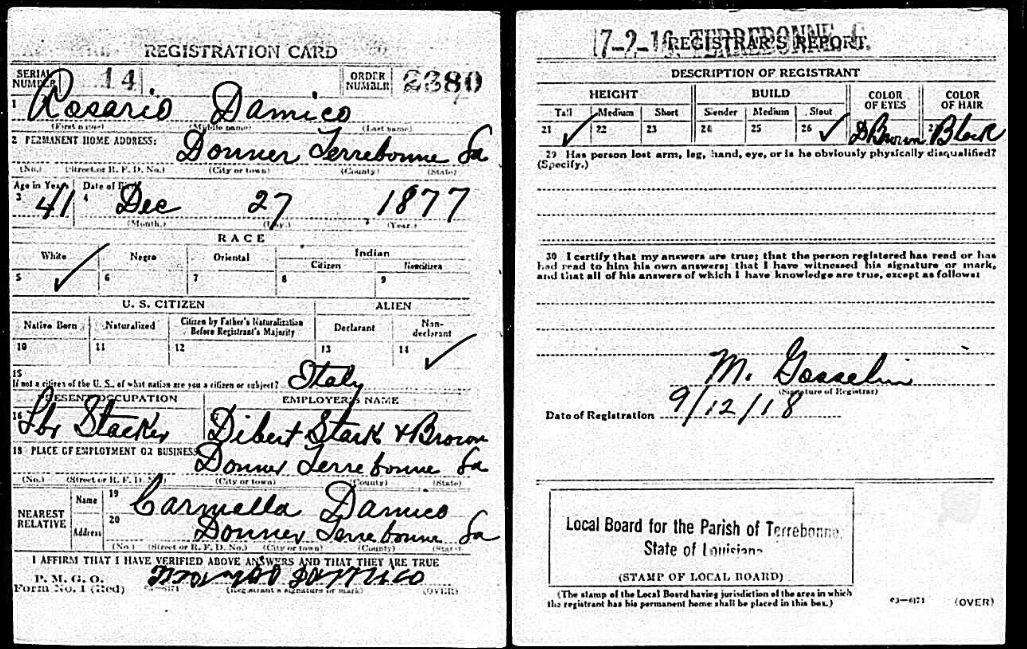 REGISTRATION CARD
SERIAL NUMBER 14 ORDER NUMBER 2380
1 Rosario Damico
(First name) (Middle name) (Last name)
2 PERMANENT HOME ADDRESS:
Donner Terrebonne La
(No.) (Street or R. F. D. No.) (City or town) (County) (State)
Age in Years Date of Birth
3 41 4 Dec 27 1877
(Month.) (Day.) (Year.)
RACE
White Negro Oriental Indian
Citizen Noncitizen
5 6 7 8 9
U. S. CITIZEN ALIEN
Native Born Naturalized Citizen by Father's Naturalization Before Registrant's Majority Declarant Non-declarant
10 11 12 13 14
15
If not a citizen of the U. S., of what nation are you a citizen or subject? Italy
PRESENT OCCUPATION EMPLOYER'S NAME
16 Lbr Stacker Dibert Stark & Brown
18 PLACE OF EMPLOYMENT OR BUSINESS:
Donner Terrebonne La
(No.) (Street or R. F. D. No.) (City or town) (County) (State)
NEAREST RELATIVE
Name 19 Carmella Damico
Address 20 Donner Terrebonne La
(No.) (Street or R. F. D. No.) (City or town) (County) (State)
I AFFIRM THAT I HAVE VERIFIED ABOVE ANSWERS AND THAT THEY ARE TRUE
P. M. G. O.
Form No. 1 (Red) (Registrant's signature or mark) (OVER)
17-2-16 TERREBONNE
REGISTRAR'S REPORT.
DESCRIPTION OF REGISTRANT
HEIGHT BUILD COLOR OF EYES COLOR OF HAIR
Tall Medium Short Slender Medium Stout
21 22 23 24 25 26 D Brown Black
29 Has person lost arm, leg, hand, eye, or is he obviously physically disqualified?
(Specify.)
30 I certify that my answers are true; that the person registered has read or has
had read to him his own answers; that I have witnessed his signature or mark,
and that all of his answers of which I have knowledge are true, except as follows:
M. Gosselin
(Signature of Registrar)
Date of Registration 9/12/18
Local Board for the Parish of Terrebonne,
State of Louisiana
(STAMP OF LOCAL BOARD)
(The stamp of the Local Board having jurisdiction of the area in which
the registrant has his permanent home shall be placed in this box.)
03—6171 (OVER)